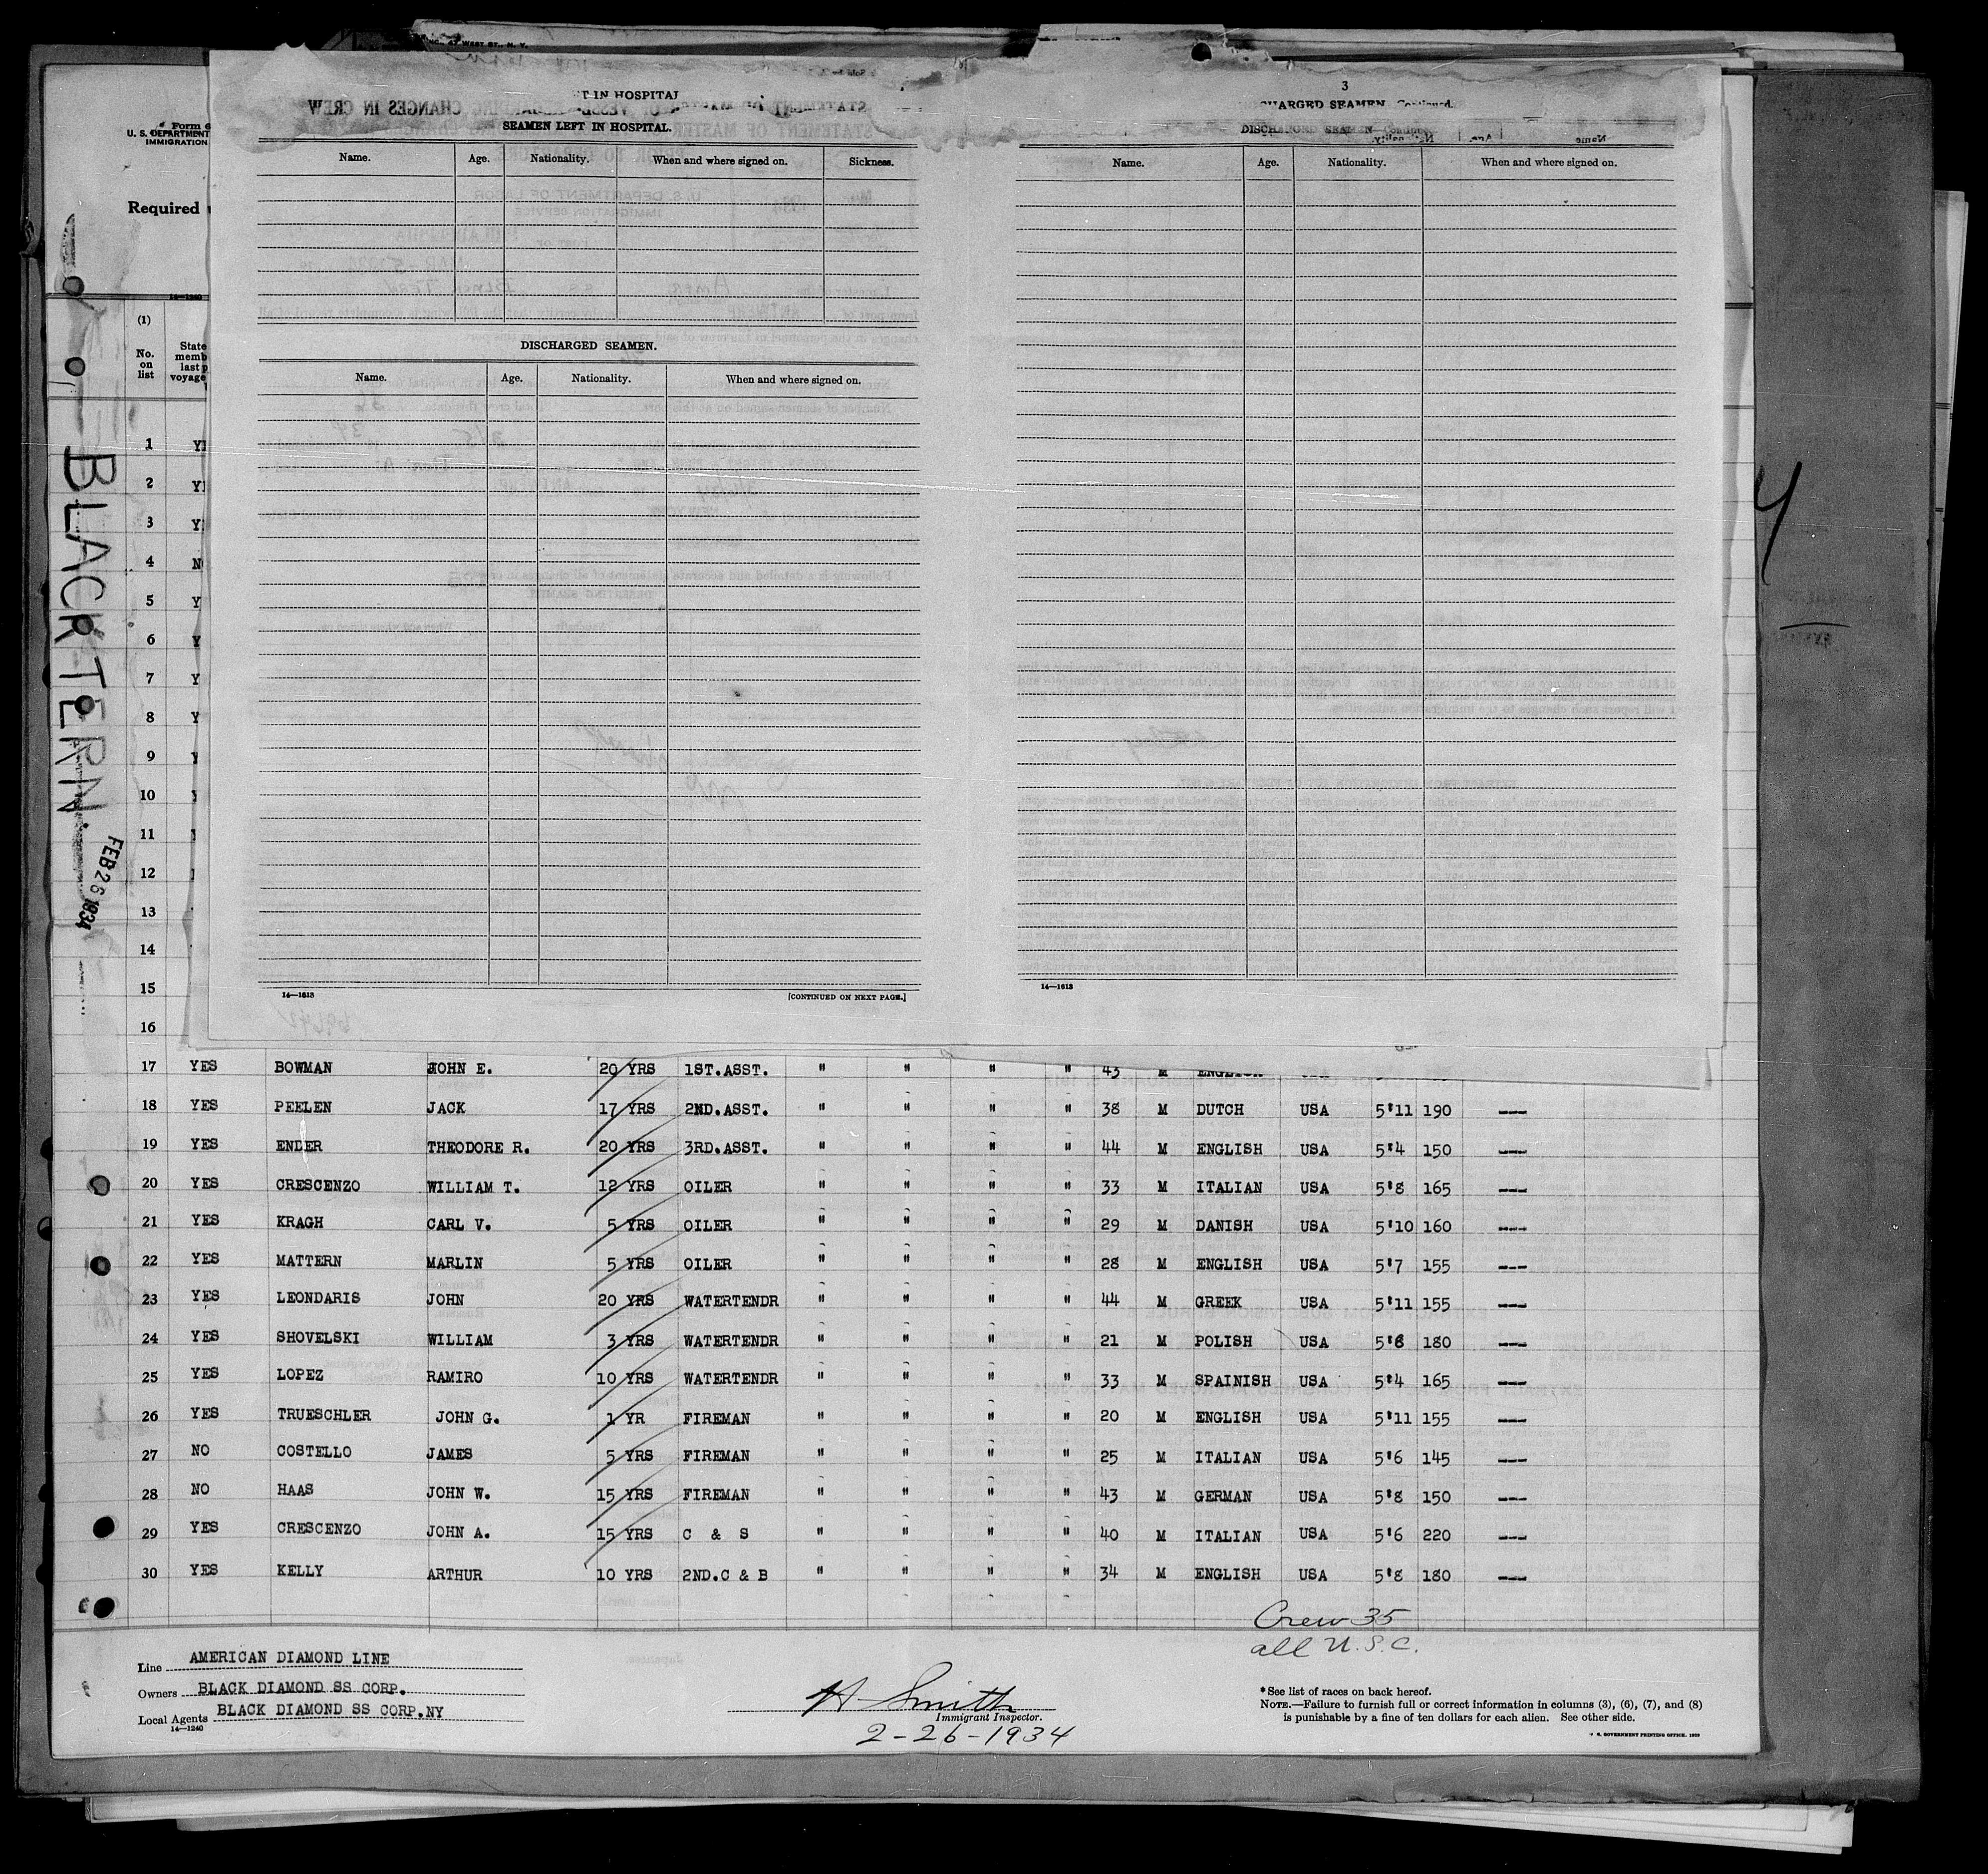 Form 6
U. S. DEPARTMENT
IMMIGRATION
Required
14—1240
(1)
No. on list
State
memb
last p
voyage
BLACK TERN.
FEB 26 1934
T IN HOSPITAL
SEAMEN LEFT IN HOSPITAL.
Name. Age. Nationality. When and where signed on. Sickness.
DISCHARGED SEAMEN.
Name. Age. Nationality. When and where signed on.
14—1613 [CONTINUED ON NEXT PAGE.]
3
CHARGED SEAMEN Continued.
DISCHARGED SEAMEN
Name. Age. Nationality. When and where signed on.
14—1613
4
1 YE
2 YE
3 YE
4 NO
5 Y
6 Y
7 Y
8 Y
9
10
11
12
13
14
15
16
17 YES BOWMAN JOHN E. 20 YRS 1ST.ASST. " " " " 43 M ENGLISH
18 YES PEELEN JACK 17 YRS 2ND.ASST. " " " " 38 M DUTCH USA 5'11 190 ---
19 YES ENDER THEODORE R. 20 YRS 3RD.ASST. " " " " 44 M ENGLISH USA 5'4 150 ---
20 YES CRESCENZO WILLIAM T. 12 YRS OILER " " " " 33 M ITALIAN USA 5'8 165 ---
21 YES KRAGH CARL V. 5 YRS OILER " " " " 29 M DANISH USA 5'10 160 ---
22 YES MATTERN MARLIN 5 YRS OILER " " " " 28 M ENGLISH USA 5'7 155 ---
23 YES LEONDARIS JOHN 20 YRS WATERTENDR " " " " 44 M GREEK USA 5'11 155 ---
24 YES SHOVELSKI WILLIAM 3 YRS WATERTENDR " " " " 21 M POLISH USA 5'8 180 ---
25 YES LOPEZ RAMIRO 10 YRS WATERTENDR " " " " 33 M SPAINISH USA 5'4 165 ---
26 YES TRUESCHLER JOHN G. 1 YR FIREMAN " " " " 20 M ENGLISH USA 5'11 155 ---
27 NO COSTELLO JAMES 5 YRS FIREMAN " " " " 25 M ITALIAN USA 5'6 145 ---
28 NO HAAS JOHN W. 15 YRS FIREMAN " " " " 43 M GERMAN USA 5'8 150 ---
29 YES CRESCENZO JOHN A. 15 YRS C & S " " " " 40 M ITALIAN USA 5'6 220 ---
30 YES KELLY ARTHUR 10 YRS 2ND.C & B " " " " 34 M ENGLISH USA 5'8 180 ---
Crew 35
all U.S.C.
Line AMERICAN DIAMOND LINE
Owners BLACK DIAMOND SS CORP.
Local Agents BLACK DIAMOND SS CORP.NY
14—1240
H Smith
Immigrant Inspector.
2-26-1934
*See list of races on back hereof.
NOTE.—Failure to furnish full or correct information in columns (3), (6), (7), and (8)
is punishable by a fine of ten dollars for each alien. See other side.
GOVERNMENT PRINTING OFFICE.